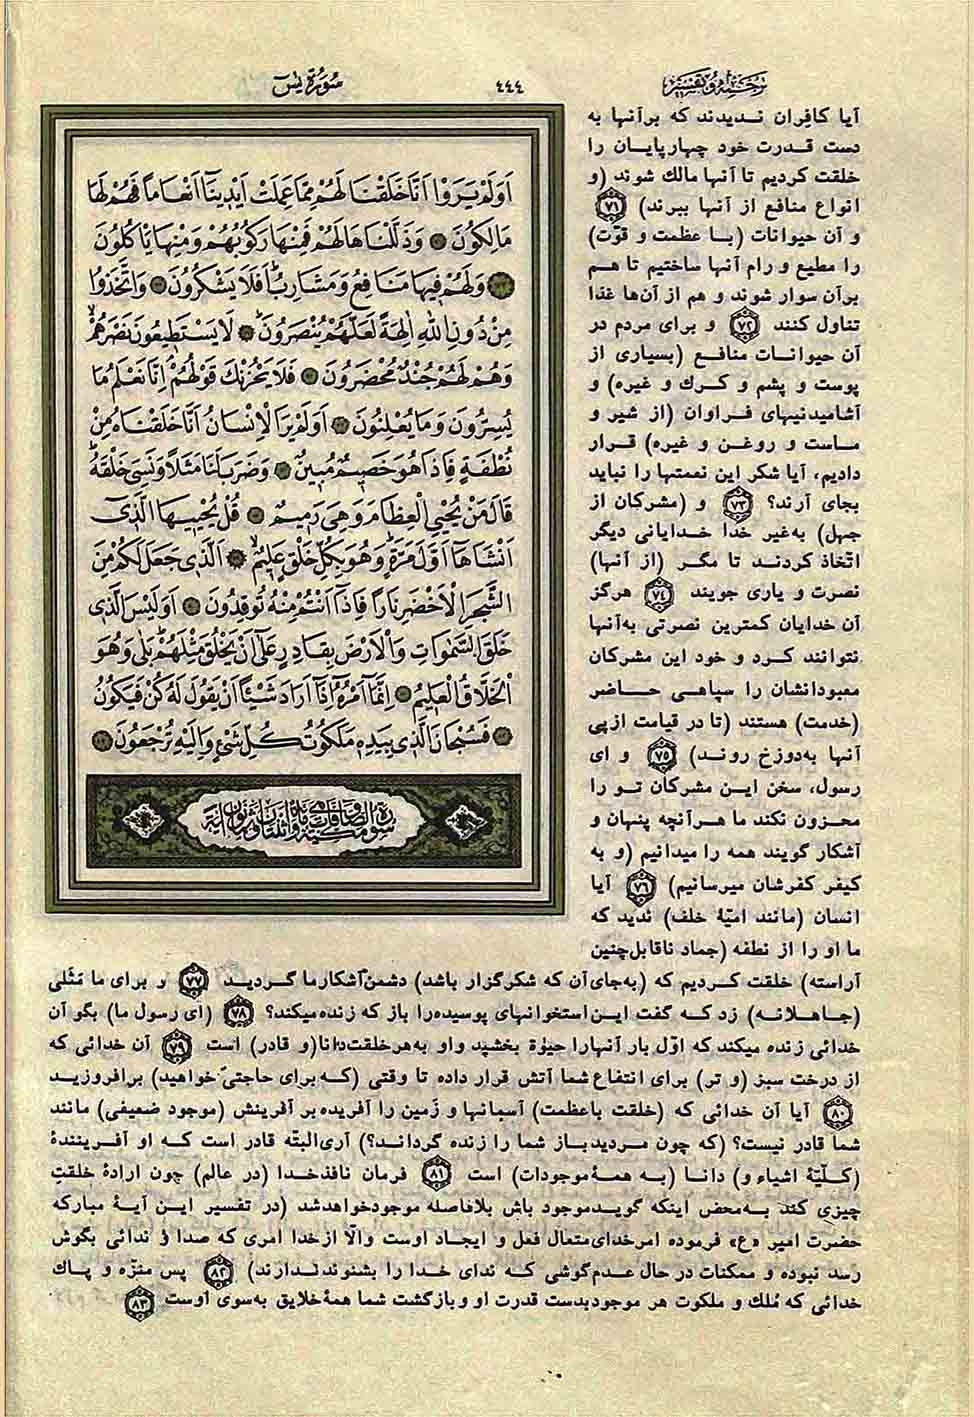 ترجمه و تفسیر
۴۴۴
سُورَةُ يٰسٓ
اَوَلَمْ يَرَوْا اَنَّا خَلَقْنَا لَهُمْ مِمَّا عَمِلَتْ اَيْدِينَآ اَنْعَاماً فَهُمْ لَهَا
مَالِكُونَ ۞ وَذَلَّلْنَاهَا لَهُمْ فَمِنْهَا رَكُوبُهُمْ وَمِنْهَا يَاْكُلُونَ
۞ وَلَهُمْ فِيهَا مَنَافِعُ وَمَشَارِبُ اَفَلَا يَشْكُرُونَ ۞ وَاتَّخَذُوا
مِنْ دُونِ اللّٰهِ اٰلِهَةً لَعَلَّهُمْ يُنْصَرُونَ ۞ لَا يَسْتَطِيعُونَ نَصْرَهُمْ
وَهُمْ لَهُمْ جُنْدٌ مُحْضَرُونَ ۞ فَلَا يَحْزُنْكَ قَوْلُهُمْ اِنَّا نَعْلَمُ مَا
يُسِرُّونَ وَمَا يُعْلِنُونَ ۞ اَوَلَمْ يَرَ الْاِنْسَانُ اَنَّا خَلَقْنَاهُ مِنْ
نُطْفَةٍ فَاِذَا هُوَ خَصِيمٌ مُبِينٌ ۞ وَضَرَبَ لَنَا مَثَلاً وَنَسِيَ خَلْقَهُ
قَالَ مَنْ يُحْيِي الْعِظَامَ وَهِيَ رَمِيمٌ ۞ قُلْ يُحْيِيهَا الَّذِي
اَنْشَاَهَآ اَوَّلَ مَرَّةٍ وَهُوَ بِكُلِّ خَلْقٍ عَلِيمٌ ۞ اَلَّذِي جَعَلَ لَكُمْ مِنَ
الشَّجَرِ الْاَخْضَرِ نَاراً فَاِذَآ اَنْتُمْ مِنْهُ تُوقِدُونَ ۞ اَوَلَيْسَ الَّذِي
خَلَقَ السَّمٰوَاتِ وَالْاَرْضَ بِقَادِرٍ عَلٰى اَنْ يَخْلُقَ مِثْلَهُمْ بَلٰى وَهُوَ
الْخَلَّاقُ الْعَلِيمُ ۞ اِنَّمَآ اَمْرُهُ اِذَآ اَرَادَ شَيْئاً اَنْ يَقُولَ لَهُ كُنْ فَيَكُونُ
۞ فَسُبْحَانَ الَّذِي بِيَدِهِ مَلَكُوتُ كُلِّ شَيْءٍ وَاِلَيْهِ تُرْجَعُونَ ۞
سورة الصافات مكية وهي مائة واثنتان وثمانون آية
آیا کافران ندیدند که برآنها به
دست قدرت خود چهارپایان را
خلقت کردیم تا آنها مالك شوند (و
انواع منافع از آنها ببرند) ۷۱
و آن حیوانات (با عظمت و قوّت)
را مطیع و رام آنها ساختیم تا هم
برآن سوار شوند و هم از آن‌ها غذا
تناول کنند ۷۲ و برای مردم در
آن حیوانات منافع (بسیاری از
پوست و پشم و کرك و غیره) و
آشامیدنیهای فراوان (از شیر و
ماست و روغن و غیره) قرار
دادیم، آیا شکر این نعمتها را نباید
بجای آرند؟ ۷۳ و (مشرکان از
جهل) به‌غیر خدا خدایانی دیگر
اتّخاذ کردند تا مگر (از آنها)
نصرت و یاری جویند ۷۴ هرگز
آن خدایان کمترین نصرتی به‌آنها
نتوانند کرد و خود این مشرکان
معبودانشان را سپاهی حاضر
(خدمت) هستند (تا در قیامت ازپی
آنها به‌دوزخ روند) ۷۵ و ای
رسول، سخن این مشرکان تو را
محزون نکند ما هرآنچه پنهان و
آشکار گویند همه را میدانیم (و به
کیفر کفرشان میرسانیم) ۷۶ آیا
انسان (مانند امیّهٔ خلف) ندید که
ما او را از نطفه (جماد ناقابل‌چنین
آراسته) خلقت کردیم که (به‌جای‌آن که شکرگزار باشد) دشمن‌آشکارما گردید ۷۷ و برای ما مَثَلی
(جاهلانه) زد که گفت این‌استخوانهای پوسیده‌را باز که زنده‌میکند؟ ۷۸ (ای رسول ما) بگو آن
خدائی زنده میکند که اوّل بار آنهارا حیوٰة بخشید واو به‌هرخلقت‌دانا(و قادر) است ۷۹ آن خدائی که
از درخت سبز (و تر) برای انتفاع شما آتش قرار داده تا وقتی (که‌برای حاجتی خواهید) برافروزید
۸۰ آیا آن خدائی که (خلقت باعظمت) آسمانها و زمین را آفریده بر آفرینش (موجود ضعیفی) مانند
شما قادر نیست؟ (که چون مردیدباز شما را زنده گرداند؟) آری‌البتّه قادر است که او آفرینندهٔ
(کلّیّهٔ اشیاء و) دانا (به همهٔ موجودات) است ۸۱ فرمان نافذخدا (در عالم) چون ارادهٔ خلقتِ
چیزی کند به‌محض اینکه گویدموجود باش بلافاصله موجودخواهدشد (در تفسیر این آیهٔ مبارکه
حضرت امیر «ع» فرموده امرخدای‌متعال فعل و ایجاد اوست والّا ازخدا امری که صدا وُ ندائی بگوش
رسد نبوده و ممکنات در حال عدم‌گوشی که ندای خدا را بشنوندندارند) ۸۲ پس منزّه و پاك
خدائی که مُلك و ملکوت هر موجودبدست قدرت او وبازگشت شما همهٔ خلایق به‌سوی اوست ۸۳